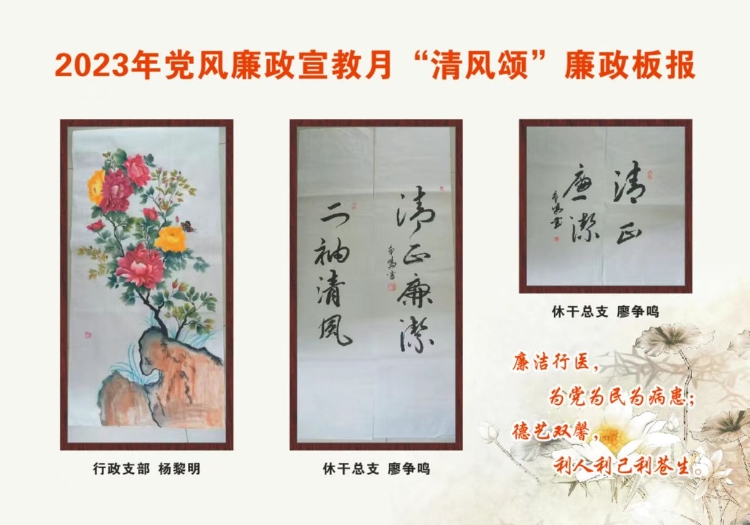 2023年党风廉政宣教月“清风颂”廉政板报
清正廉潔
二袖清風
清正
廉潔
行政支部 杨黎明
休干总支 廖争鸣
休干总支 廖争鸣
廉洁行医，
为党为民为病患；
德艺双馨，
利人利己利苍生。